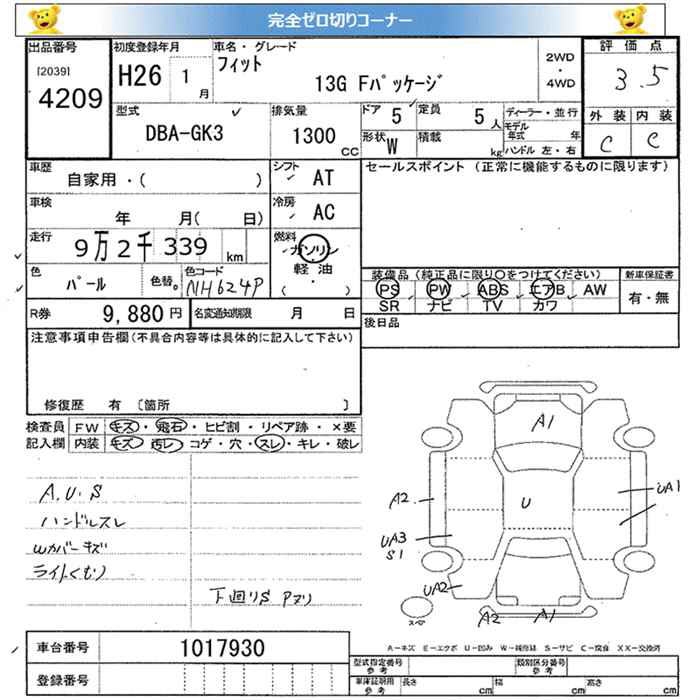 完全ゼロ切りコーナー
出品番号 初度登録年月 車名・グレード 2WD ・ 4WD 評価点
[2039] 4209 H26 1月 フィット 13G Fパッケージ 3.5
型式 DBA-GK3 排気量 1300 CC ドア 5 定員 5人 ディーラー・並行 外装 内装
形状 W 積載 kg モデル年式 年 ハンドル 左・右 C C
車歴 自家用・( ) シフト AT セールスポイント (正常に機能するものに限ります)
車検 年 月( 日) 冷房 AC
走行 9万2千339 km 燃料 ガソリン 軽油 ( ・ )
色 パール 色替。 色コード NH624P
装備品 (純正品に限り○をつけてください) 新車保証書
PS PW ABS エアB AW 有・無
SR ナビ TV カワ
R券 9,880円 名変通知期限 月 日 後日品
注意事項申告欄(不具合内容等は具体的に記入して下さい)
修復歴 有 〔箇所 〕
検査員 FW キズ・飛石・ヒビ割・リペア跡・×要
記入欄 内装 キズ・汚レ・コゲ・穴・スレ・キレ・破レ
A.U.S
ハンドルスレ
Wカバーキズ
ライトくもり
下廻りS アサリ
A1
A2 U UA1
UA3
S1
UA2
スペア A2 A1
A-キズ E-エクボ U-凹み W-補修跡 S-サビ C-腐食 XX-交換済
車台番号 1017930
登録番号
型式指定番号 参考 類別区分番号 参考
車庫証明用 参考 長さ cm 幅 cm 高さ cm